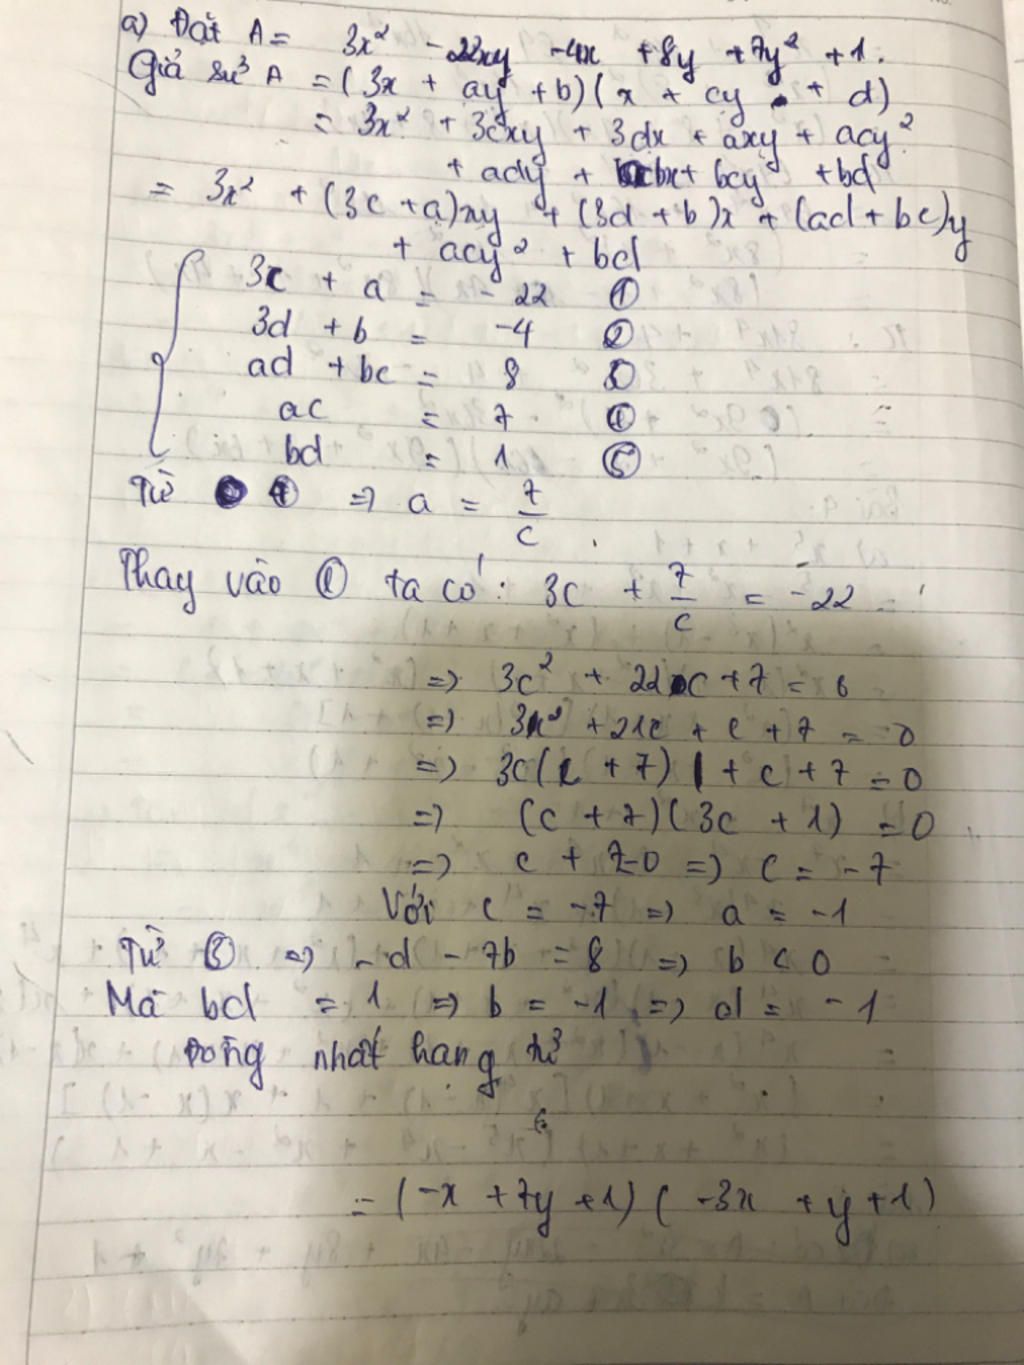 a) Đặt A = 3x² - 22xy - 4x + 8y + 7y² + 1.
Giả sử A = (3x + ay + b)(x + cy + d)
= 3x² + 3cxy + 3dx + axy + acy²
+ ady + bx + bcy + bd
= 3x² + (3c + a)xy + (3d + b)x + (ad + bc)y
+ acy² + bd
3c + a = -22 ①
3d + b = -4 ②
ad + bc = 8 ③
ac = 7 ④
bd = 1 ⑤
Từ ④ => a = 7/c
Thay vào ① ta có: 3c + 7/c = -22
=> 3c² + 22c + 7 = 0
=> 3c² + 21c + c + 7 = 0
=> 3c(c + 7) + c + 7 = 0
=> (c + 7)(3c + 1) = 0
=> c + 7 = 0 => c = -7
Với c = -7 => a = -1
Từ ③ => -d - 7b = 8 => b < 0
Mà bd = 1 => b = -1 => d = -1
Đồng nhất hạng tử
= (-x + 7y + 1)(-3x + y + 1)